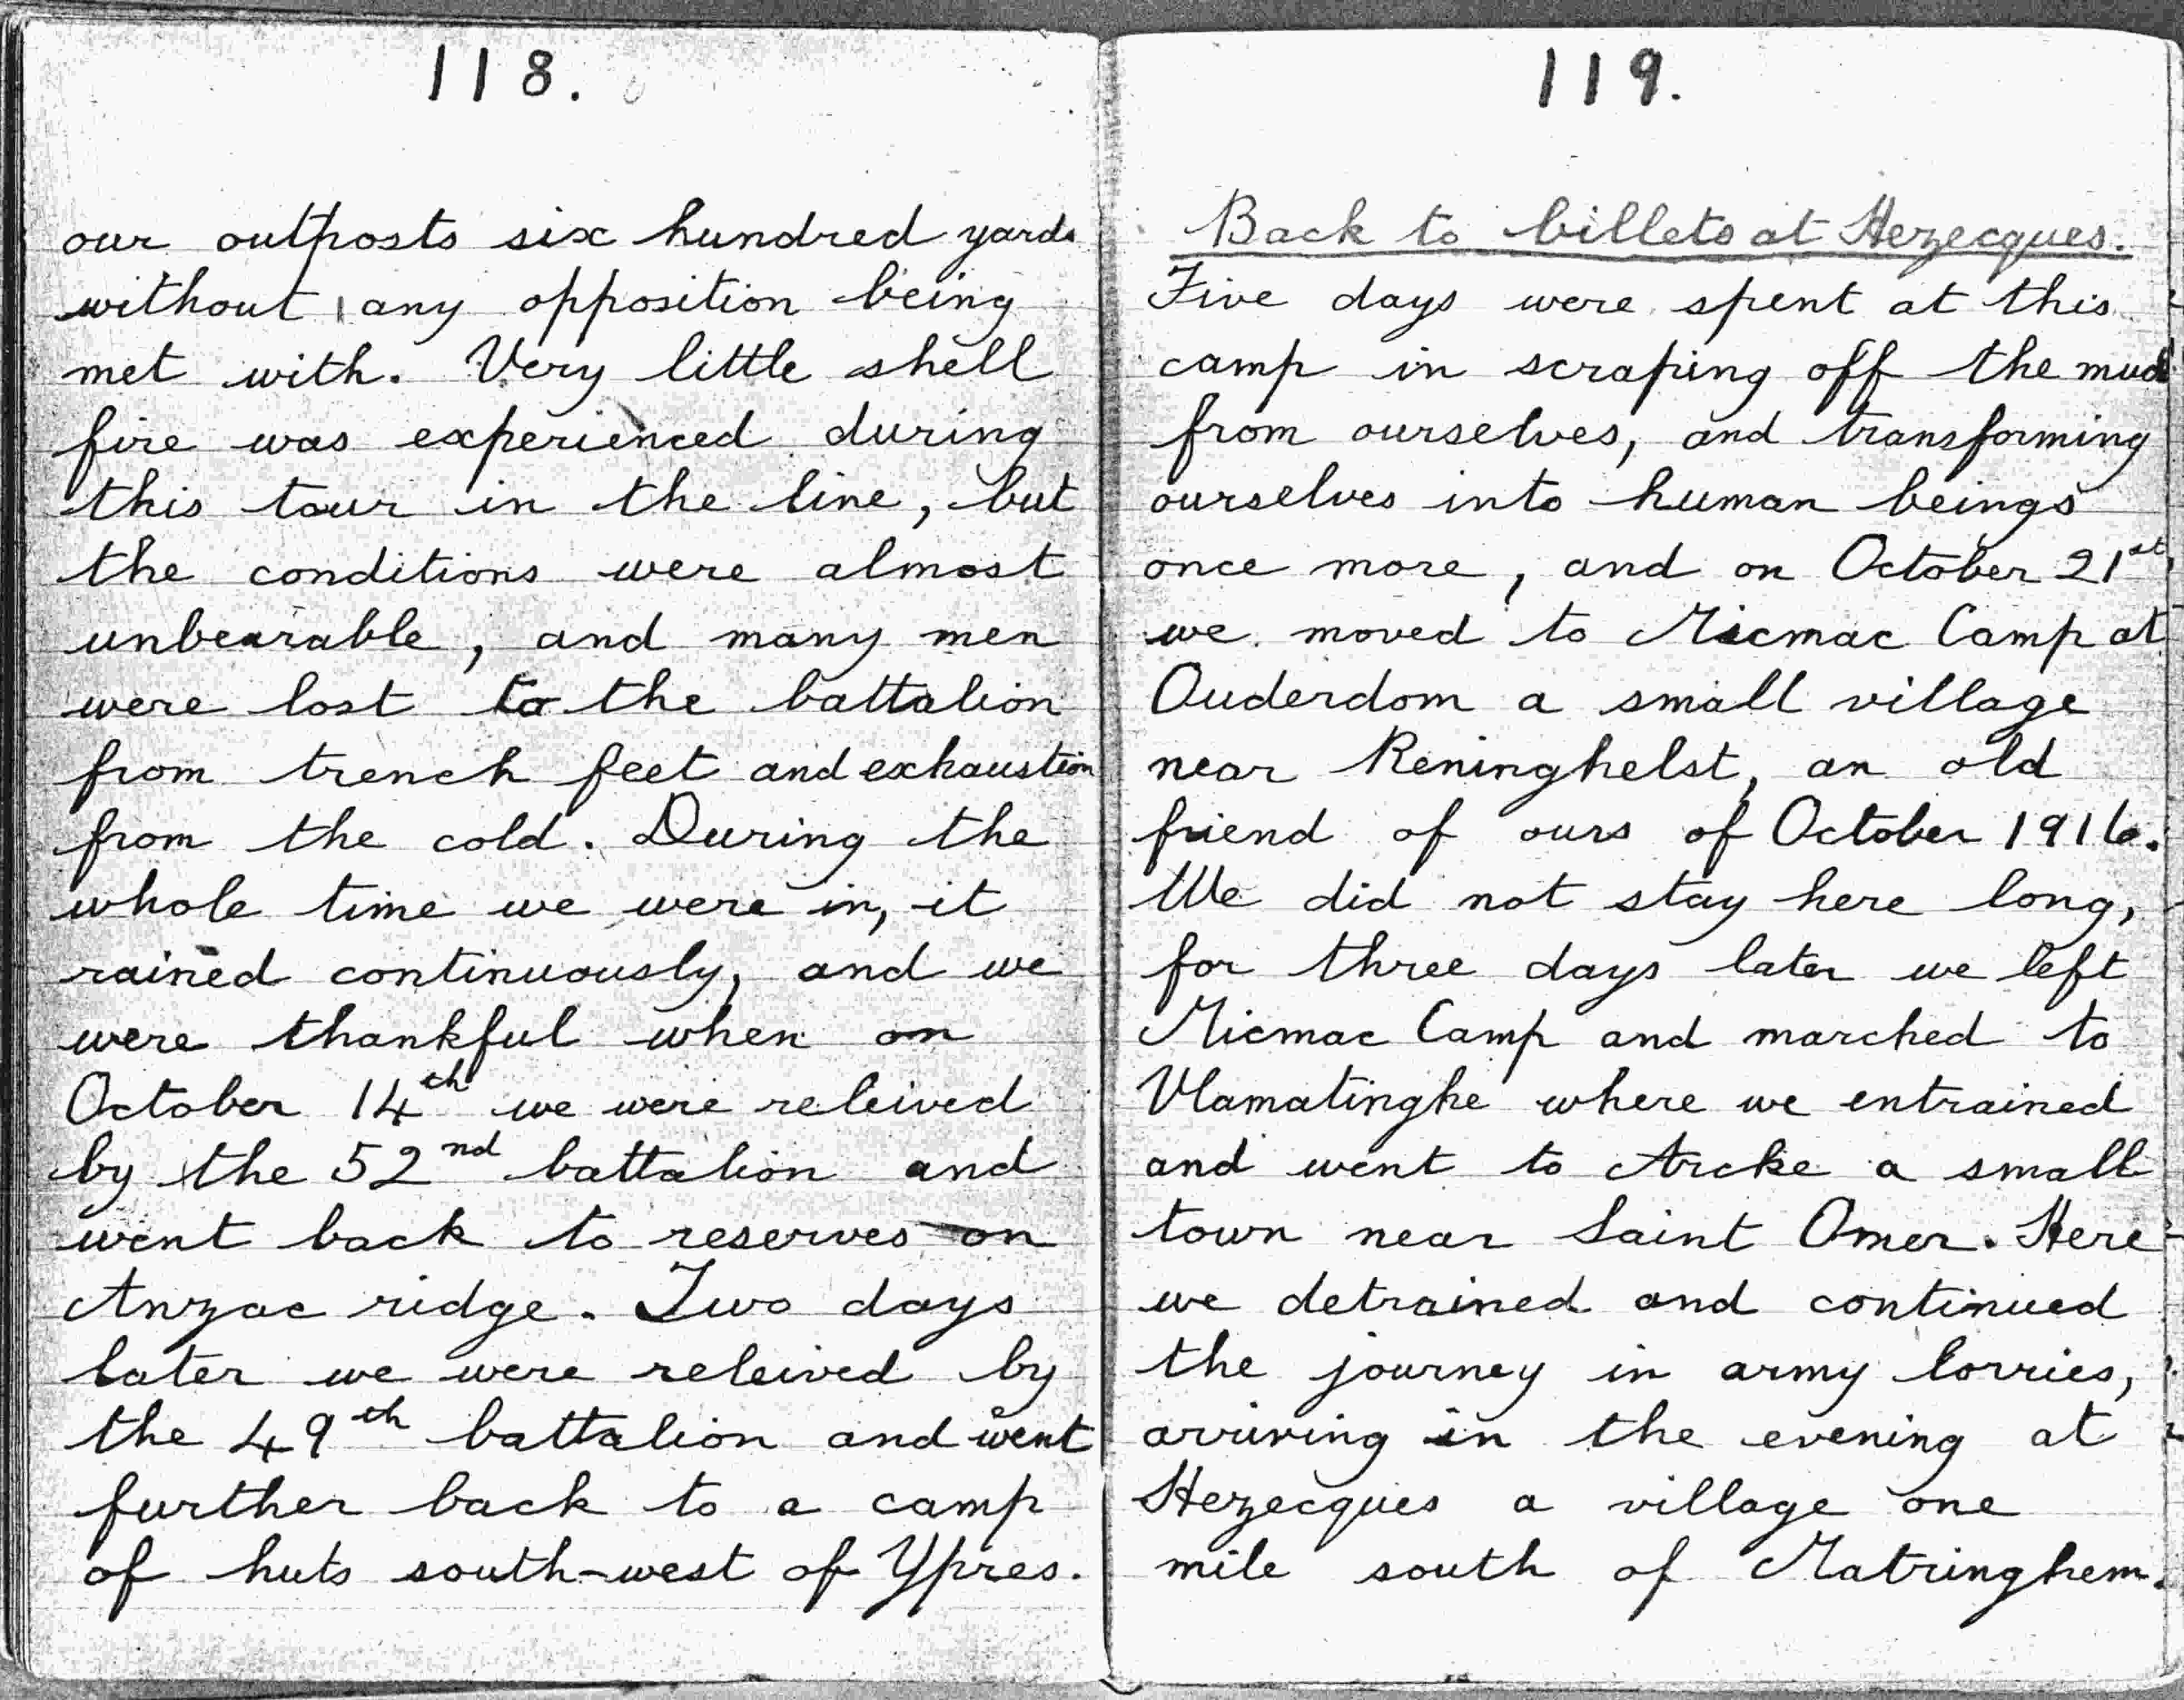 118.
our outposts six hundred yards
without any opposition being
met with. Very little shell
fire was experienced during
this tour in the line, but
the conditions were almost
unbearable, and many men
were lost to the battalion
from trench feet and exhaustion
from the cold. During the
whole time we were in, it
rained continuously, and we
were thankful when on
October 14th we were releived
by the 52nd battalion and
went back to reserves on
Anzac ridge. Two days
later we were releived by
the 49th battalion and went
further back to a camp
of huts south-west of Ypres.
119.
Back to billets at Hezecques.
Five days were spent at this
camp in scraping off the mud
from ourselves, and transforming
ourselves into human beings
once more, and on October 21st
we moved to Micmac Camp at
Ouderdom a small village
near Reninghelst, an old
friend of ours of October 1916.
We did not stay here long,
for three days later we left
Micmac Camp and marched to
Vlamatinghe where we entrained
and went to Arcke a small
town near Saint Omer. Here
we detrained and continued
the journey in army lorries,
arriving in the evening at
Hezecques a village one
mile south of Matringhem.